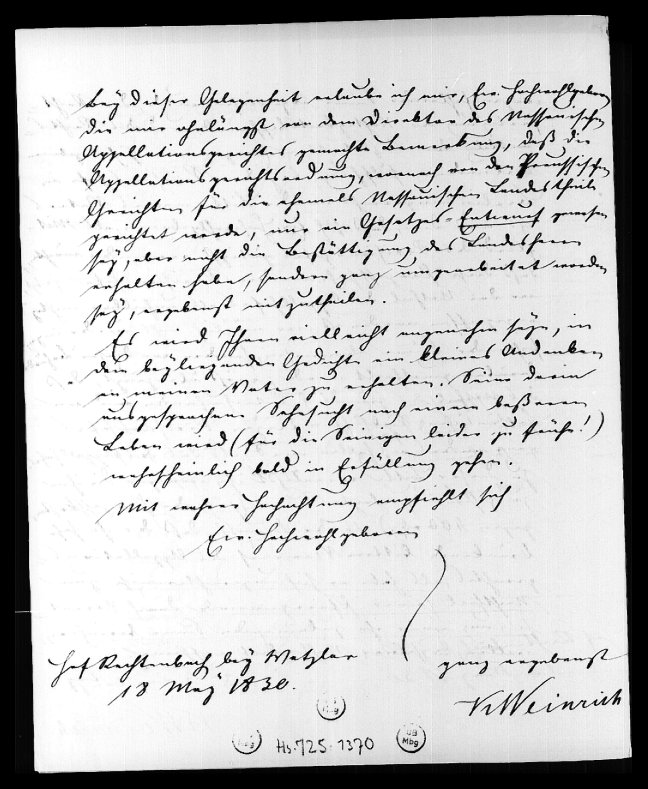 Bey dieser Gelegenheit erlaube ich mir, Ew. Hochwohlgeboren
die mir ohnlängst von dem Direktor des Nassauischen
Appellationsgerichtes gemachte Bemerkung, daß die
Appellationsgerichtsordnung, wornach von den Preussischen
Gerichten für die ehemals Nassauischen Landestheile
gerichtet werde, nur ein Gesetzes-Entwurf gewesen
sey, aber nicht die Bestättigung des Landesherrn
erhalten habe, sondern ganz umgearbeitet worden
sey, ergebenst mitzutheilen.
Es wird Ihnen vielleicht angenehm seyn, in
dem beyliegenden Gedichte ein kleines Andenken
an meinen Vater zu erhalten. Seine darin
ausgesprochene Sehnsucht nach einem beßeren
Leben wird (für die Seinigen leider zu frühe!)
wahrscheinlich bald in Erfüllung gehen.
Mit wahrer Hochachtung empfiehlt sich
Ew. Hochwohlgeboren
ganz ergebenst
Hof Rechtenbach bey Wetzlar
18 May 1830.
Weinrich
Hs. 725: 1370
UB
Mbg